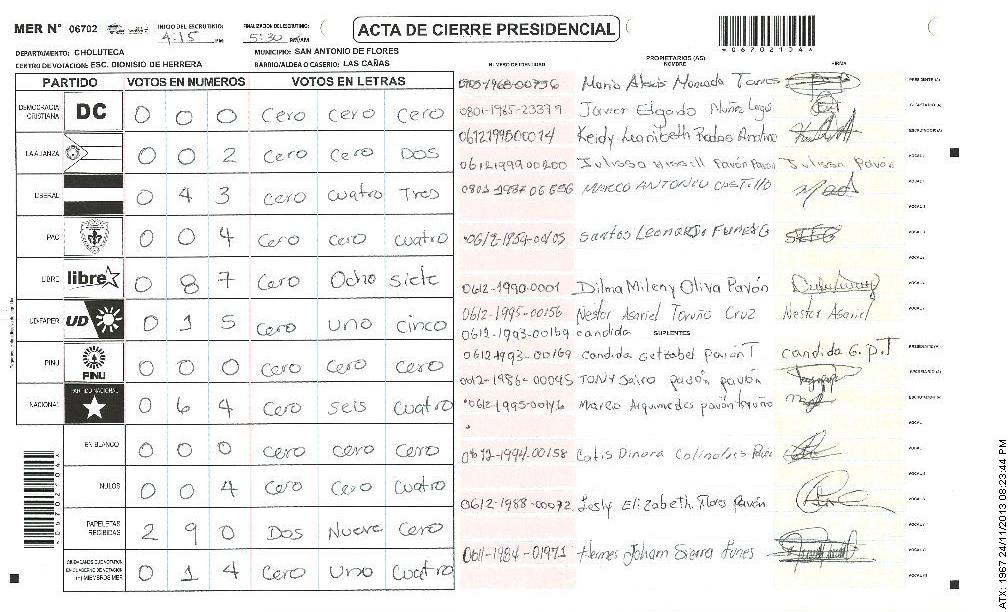 MER N° 06702 INICIO DEL ESCRUTINIO: 4:15 PM FINALIZACION DEL ESCRUTINIO: 5:30 PM/AM ACTA DE CIERRE PRESIDENCIAL *067021044*
DEPARTAMENTO: CHOLUTECA MUNICIPIO: SAN ANTONIO DE FLORES
CENTRO DE VOTACION: ESC. DIONISIO DE HERRERA BARRIO/ALDEA O CASERIO: LAS CAÑAS
NUMERO DE IDENTIDAD PROPIETARIOS (AS) NOMBRE FIRMA
PARTIDO VOTOS EN NUMEROS VOTOS EN LETRAS
DEMOCRACIA CRISTIANA DC 0 0 0 cero cero cero
LA ALIANZA 0 0 2 cero cero Dos
LIBERAL 0 4 3 cero cuatro Tres
PAC 0 0 4 cero cero cuatro
LIBRE libre 0 8 7 cero Ocho siete
UD-FAPER UD 0 1 5 cero uno cinco
PINU PINU 0 0 0 cero cero cero
NACIONAL PARTIDO NACIONAL 0 6 4 cero seis cuatro
EN BLANCO 0 0 0 cero cero cero
NULOS 0 0 4 cero cero cuatro
PAPELETAS RECIBIDAS 2 9 0 Dos Nueve cero
CIUDADANOS QUE VOTARON EN CUADERNO DE VOTACION (+) MIEMBROS MER 0 1 4 cero uno cuatro
0801-1985-23379 Javier Edgado
061219950014 Keidy
0612199900200 Julissa Pavón Julissa Pavón
MARCO ANTONIO CASTILLO
0612-1954-00105 Santos Leonardo Funes G
0612-1990-0001 Dilma Mileny Oliva Pavón
0612-1995-00156 Nestor Asariel Toruño Cruz Nestor Asariel
0612-1993-00169 candida
SUPLENTES
06121993-00169 candida Getzabel pavón T candida G. p. T
0612-1986-00045 TONY Jairo pavón pavón
0612-1995-00146 Marco Arquimedes pavón toruño
0612-1994-00158
0612-1988-00072 Lesly Elizabeth Flores Pavón
0611-1984-01971 Hermes Joham Sierra Funes
ATX: 1967 24/11/2013 08:23:44 PM